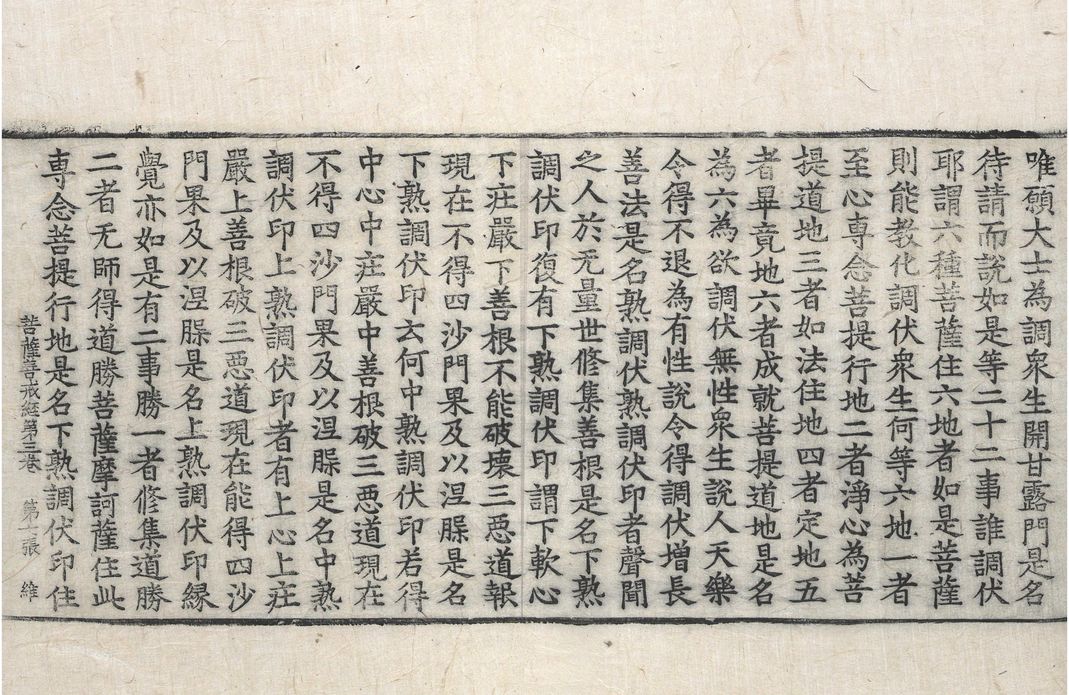 唯願大士為調衆生開甘露門是名
待請而說如是等二十二事誰調伏
耶謂六種菩薩住六地者如是菩薩
則能教化調伏衆生何等六地一者
至心専念菩提行地二者淨心為菩
提道地三者如法住地四者定地五
者畢竟地六者成就菩提道地是名
為六為欲調伏無性衆生說人天樂
令得不退為有性說令得調伏增長
善法是名熟調伏熟調伏印者聲聞
之人於无量世修集善根是名下熟
調伏印復有下熟調伏印謂下軟心
下庄嚴下善根不能破壞三惡道報
現在不得四沙門果及以涅槃是名
下熟調伏印云何中熟調伏印若得
中心中庄嚴中善根破三惡道現在
不得四沙門果及以涅槃是名中熟
調伏印上熟調伏印者有上心上庄
嚴上善根破三惡道現在能得四沙
門果及以涅槃是名上熟調伏印緣
覺亦如是有二事勝一者修集道勝
二者无師得道勝菩薩摩訶薩住此
専念菩提行地是名下熟調伏印住
菩薩善戒経第三巻 第十張 維